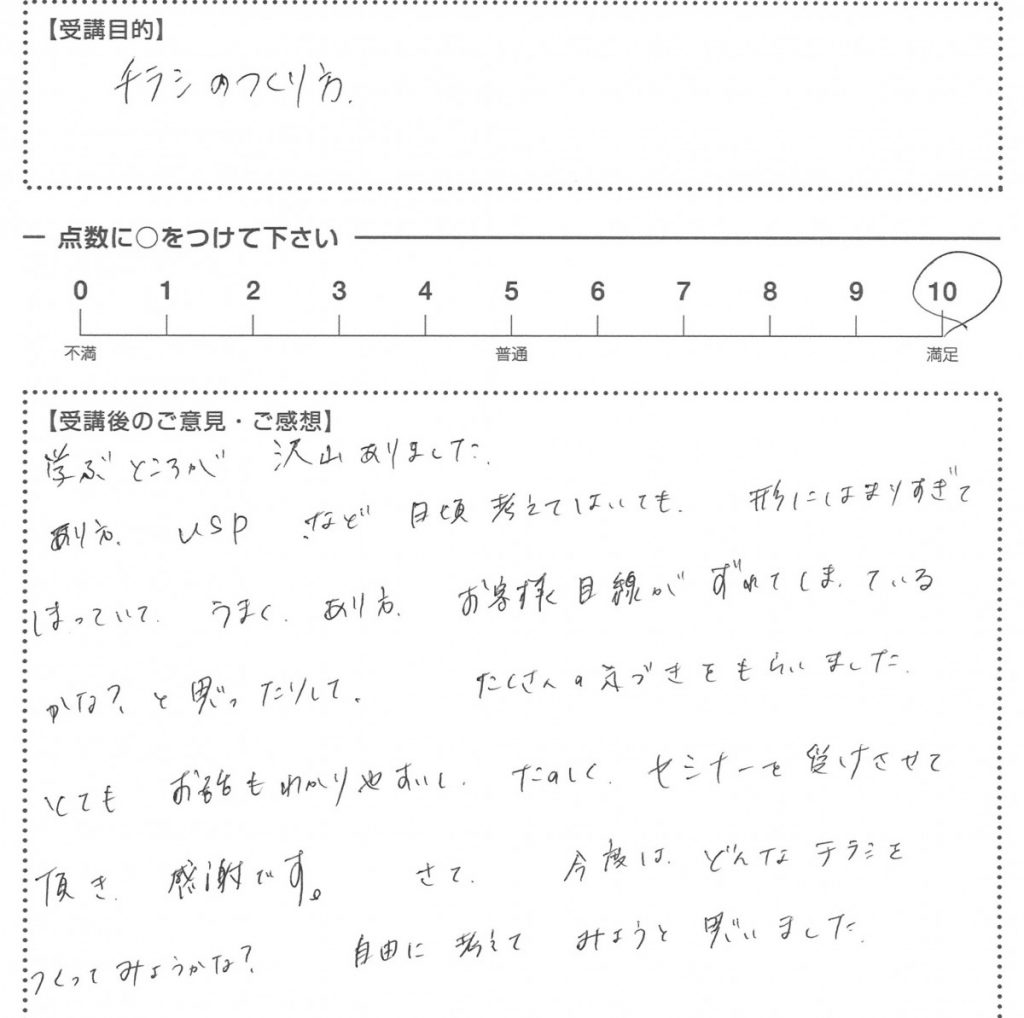 【受講目的】
チラシのつくり方.
点数に○をつけて下さい
0 1 2 3 4 5 6 7 8 9 10
不満 普通 満足
【受講後のご意見・ご感想】
学ぶところが 沢山ありました.
あり方. USP など 日頃考えてはいても. 形にはまりすぎて
しまっていて. うまく. あり方. お客様目線がずれてしまっている
かな?と思ったりして。 たくさんの気づきをもらいました.
とても お話もわかりやすいし. たのしく. セミナーを受けさせて
頂き. 感謝です。 さて. 今度は. どんなチラシを
つくってみようかな? 自由に考えて みようと思いました.